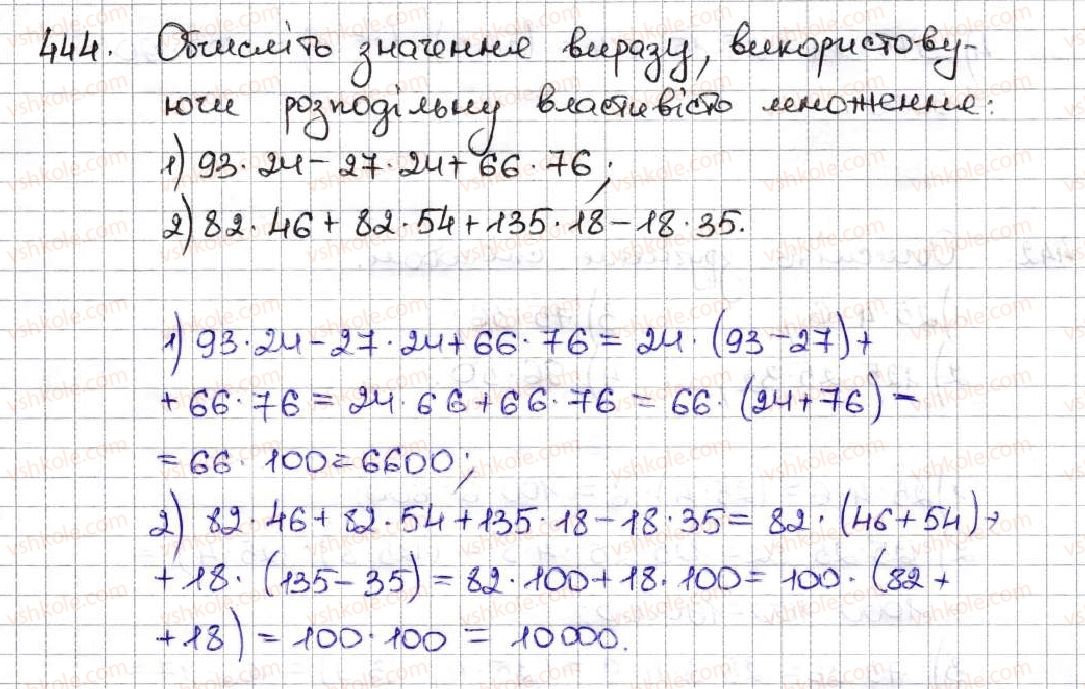 444. Обчисліть значення виразу, використову-
ючи розподільну властивість множення:
1) 93·24-27·24+66·76;
2) 82·46+82·54+135·18-18·35.
1) 93·24-27·24+66·76=24·(93-27)+
+66·76=24·66+66·76=66·(24+76)=
=66·100=6600;
2) 82·46+82·54+135·18-18·35=82·(46+54)+
+18·(135-35)=82·100+18·100=100·(82+
+18)=100·100=10000.